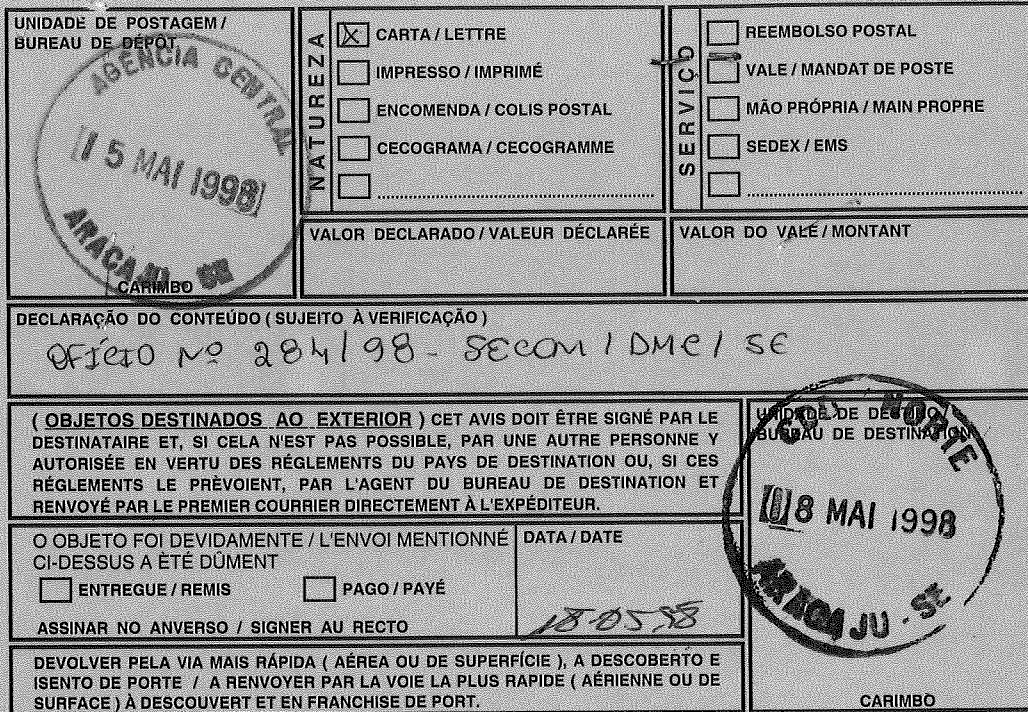 UNIDADE DE POSTAGEM /
BUREAU DE DÉPÔT
AGENCIA CENTRAL
15 MAI 1998
ARACAJU - SE
CARIMBO
NATUREZA
X CARTA / LETTRE
IMPRESSO / IMPRIMÉ
ENCOMENDA / COLIS POSTAL
CECOGRAMA / CECOGRAMME
SERVIÇO
REEMBOLSO POSTAL
VALE / MANDAT DE POSTE
MÃO PRÓPRIA / MAIN PROPRE
SEDEX / EMS
VALOR DECLARADO / VALEUR DÉCLARÉE
VALOR DO VALE / MONTANT
DECLARAÇÃO DO CONTEÚDO ( SUJEITO À VERIFICAÇÃO )
OFÍCIO Nº 284/98 - SECOM / DMC / SE
( OBJETOS DESTINADOS AO EXTERIOR ) CET AVIS DOIT ÊTRE SIGNÉ PAR LE
DESTINATAIRE ET, SI CELA N'EST PAS POSSIBLE, PAR UNE AUTRE PERSONNE Y
AUTORISÉE EN VERTU DES RÉGLEMENTS DU PAYS DE DESTINATION OU, SI CES
RÉGLEMENTS LE PRÈVOIENT, PAR L'AGENT DU BUREAU DE DESTINATION ET
RENVOYÉ PAR LE PREMIER COURRIER DIRECTEMENT À L'EXPÉDITEUR.
UNIDADE DE DESTINO /
BUREAU DE DESTINATION
NORTE
18 MAI 1998
ARACAJU - SE
CARIMBO
O OBJETO FOI DEVIDAMENTE / L'ENVOI MENTIONNÉ
CI-DESSUS A ÈTÉ DÛMENT
ENTREGUE / REMIS
PAGO / PAYÉ
ASSINAR NO ANVERSO / SIGNER AU RECTO
DATA / DATE
18-05-98
DEVOLVER PELA VIA MAIS RÁPIDA ( AÉREA OU DE SUPERFÍCIE ), A DESCOBERTO E
ISENTO DE PORTE / A RENVOYER PAR LA VOIE LA PLUS RAPIDE ( AÉRIENNE OU DE
SURFACE ) À DESCOUVERT ET EN FRANCHISE DE PORT.